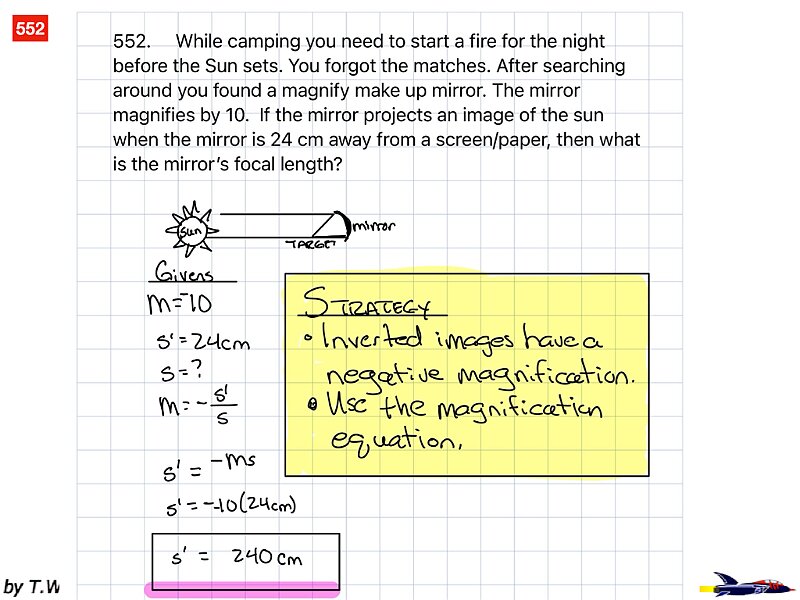 552
552. While camping you need to start a fire for the night
before the Sun sets. You forgot the matches. After searching
around you found a magnify make up mirror. The mirror
magnifies by 10. If the mirror projects an image of the sun
when the mirror is 24 cm away from a screen/paper, then what
is the mirror's focal length?
Sun
mirror
TARGET
Givens
m=-10
s'=24cm
s=?
m=-s'/s
s' = -ms
s' = --10(24cm)
s' = 240cm
STRATEGY
• Inverted images have a
negative magnification.
• Use the magnification
equation.
by T.W